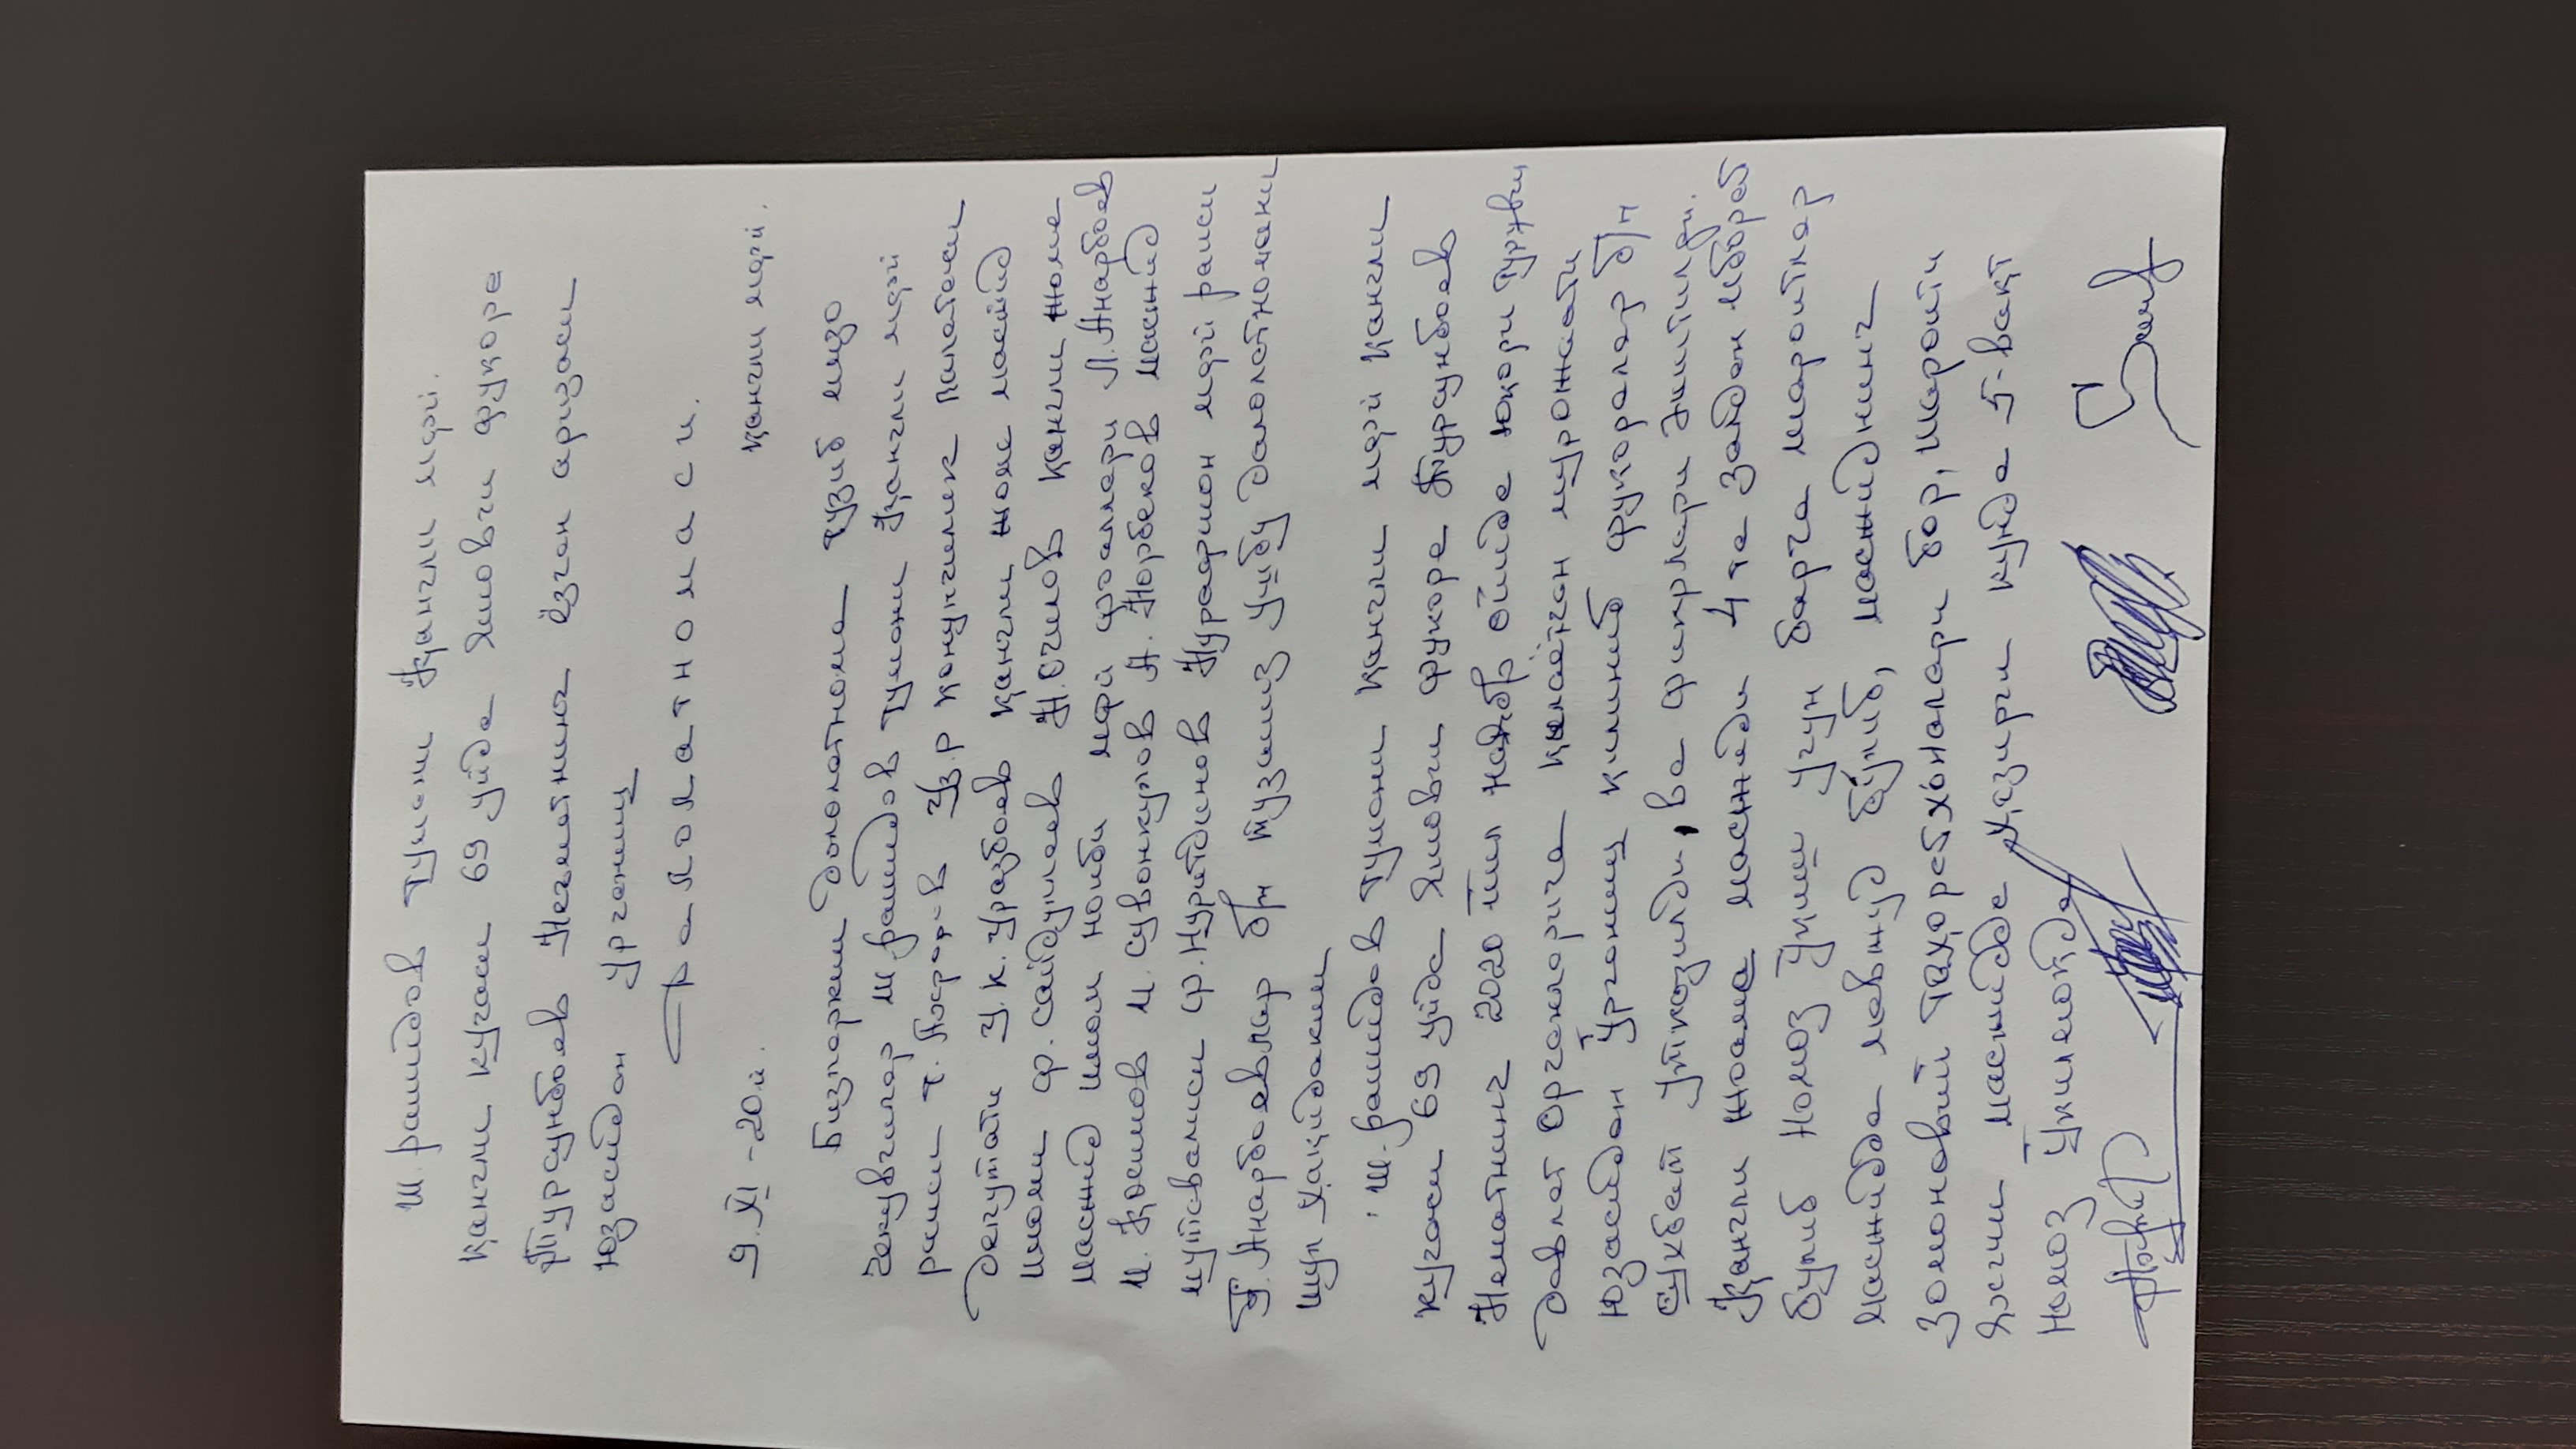 Ш. Рашидов тумани Қангли мфй.
Қангли кучаси 69 уйда Яшовчи фуқора
Турсунбоев Неъматнинг ёзган аризаси
Юзасидан Урганиш
Далолатномаси.
9. XI -20 й.
Қангли мфй.
Бизларким далолатнома тузиб имзо
Чекувчилар Ш. Рашидов тумани Қангли мфй
раиси Ўз.Р Конунчилик палатаси
Депутати У.К. Уразбоев Қангли жоме масжид
имоми Ф. Сайдуллаев Н. Очилов Қангли жоме
масжид имом ноиби мфй фаоллари Л. Анарбоев
И. Қосимов И. Сувонкулов А. Норбеков масжид
мутавалиси Ф. Нуритдинов Нурафшон мфй раиси
Г. Анарбоевлар б/н тузамиз ушбу далолатномани
шул Ҳақидаким
Ш. Рашидов тумани Қангли мфй Қангли
кучаси 69 уйда Яшовчи фукора Турсунбоев
Нематнинг 2020 йил ноябр ойида юқори турувчи
давлат Органларига қилаётган мурожаати
Юзасидан Ўрганиш килиниб фукоралар б/н
сухбат утказилди, ва фикрлари эшитилди.
Қангли жоама масжиди 4 та залдан иборат
булиб Номоз ўқиш учун барча шароитлар
масжидда мавжуд бўлиб, масжиднинг
Замонавий таҳоратхоналари бор, шароити
Яхши масжидда ҳазирги кунда 5-вақт
Номоз ўкилмоқда